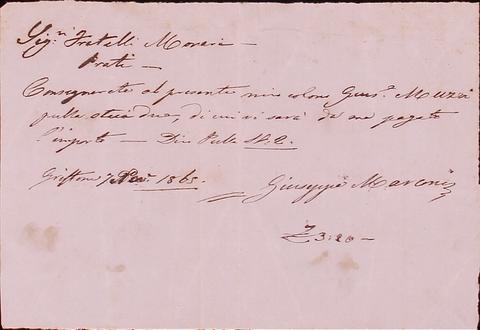 Sig.ri Fratelli Monari —
Prati —
Consegnerete al presente mio colono Gius.e Muzzi
pelle due, di cui vi sarà da me pagato
l'importo — Dico Pelle N. 2.
7 1865
Giuseppe Marconi
£ 3:20 —